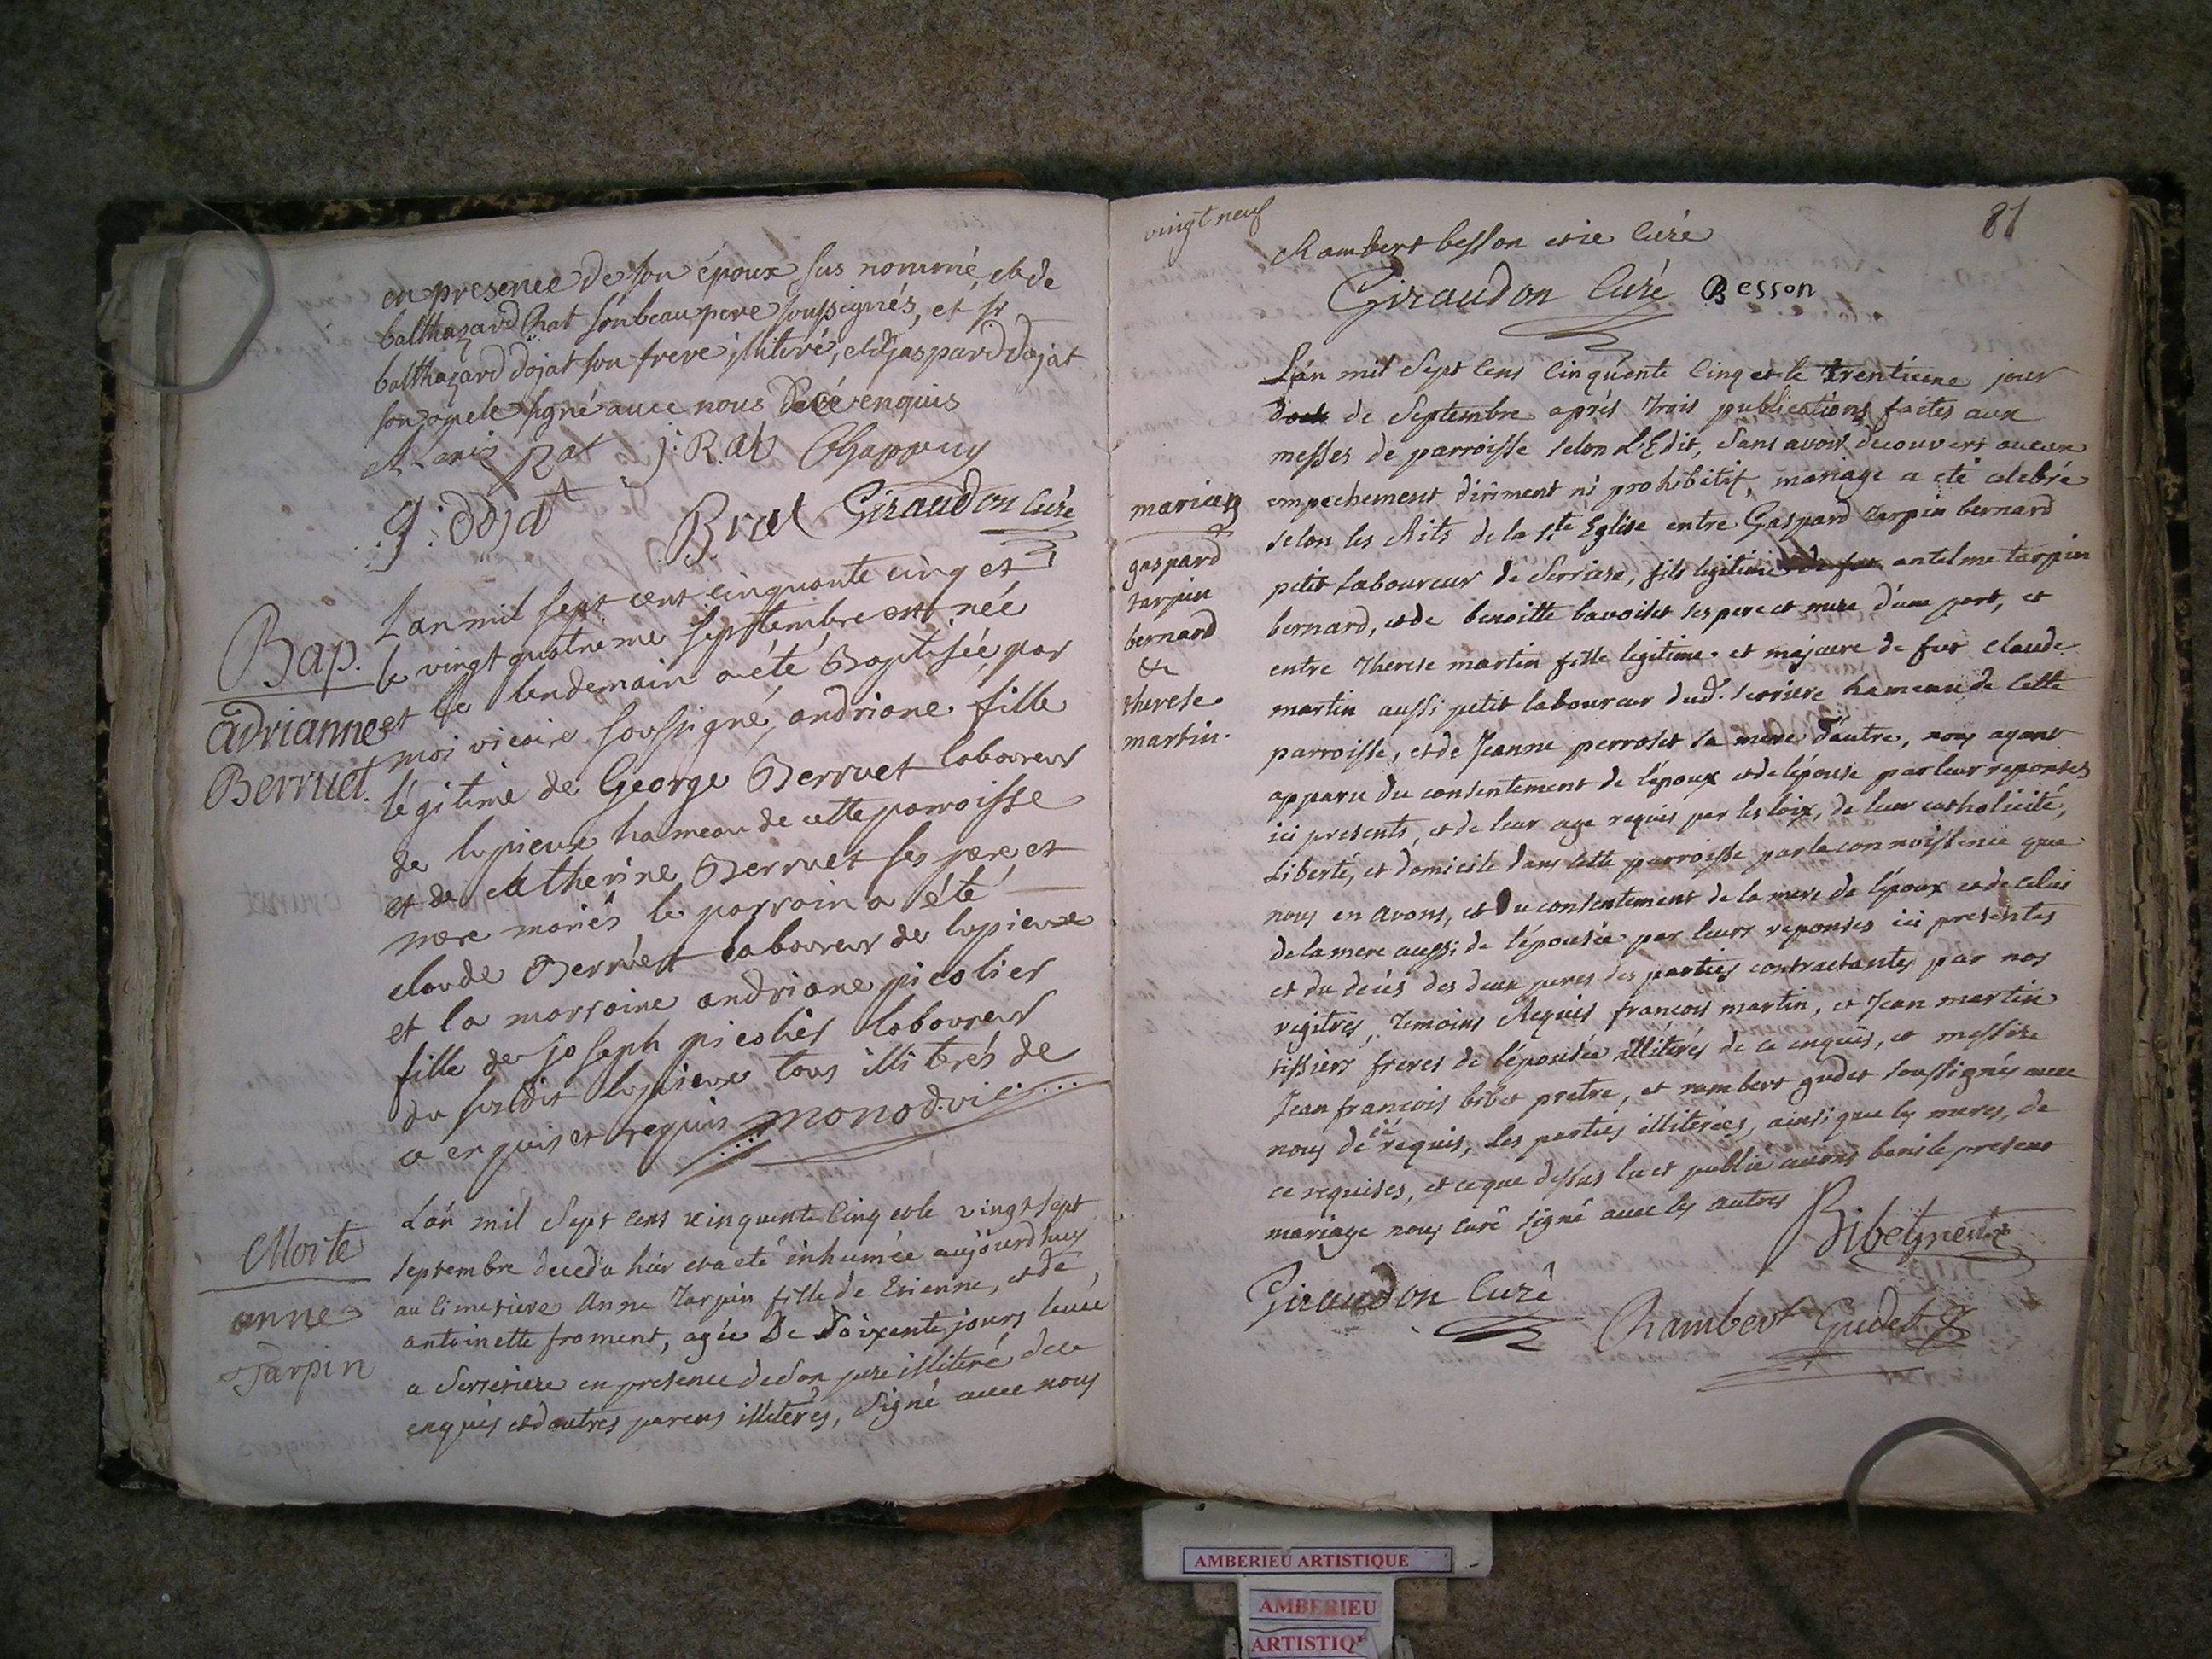 en presence de son époux sus nommé, et de
balthazard Rat son beau pere soussignés, et sr
balthazard dojat son frere illiteré, et gaspard dojat
son oncle signé avec nous de ce enquis
Rat J: Rat Chappuy
g: dojat B rat Giraudon Curé
Bap.
adrianne
Berruet.
L'an mil sept cent cinquante cinq et
le vingt quatrieme septembre est née
et le lendemain a été Baptisée par
moi vicaire soussigné, andriane fille
légitime de George Berruet laboureur
de lupieux hameau de cette parroisse
et de catherine Berruet ses pere et
mere mariés le parrain a été
claude Berruet laboureur de lupieux
et la marraine andriane picolier
fille de joseph picolier laboureur
du susdit lupieux tous illiterés de
ce enquis et requis monod. vic.
Morte
anne
Tarpin
L'an mil sept cens cinquente cinq et le vingt sept
septembre deceda hier et a eté inhumée aujourd'huy
au cimetiere Anne Tarpin fille de Etienne, et de
antoinette froment, agée De soixente jours levée
a Serriere en presence de son pere illiteré de ce
enquis et d'autres parens illiterés, signé avec nous
vingt neuf
81
Rambert besson et ie Curé
Giraudon Curé Besson
mariag
gaspard
tarpin
bernard
&
therese
martin.
L'an mil Sept Cens Cinquente Cinq et le trentieme jour
de Septembre aprés trois publications faites aux
messes de parroisse selon L'Edit, sans avoir decouvert aucun
empechement diriment ni prohibitif, mariage a eté celebré
selon les Rits de la Ste Eglise entre Gaspard Tarpin bernard
petit laboureur de Serriere, fils legitime de feu antelme tarpin
bernard, et de benoitte bavoiset ses pere et mere d'une part, et
entre Therese martin fille legitime et majeure de feu claude
martin aussi petit laboureur dud. serriere hameau de cette
parroisse, et de Jeanne perroset sa mere d'autre, nous ayant
apparu du consentement de l'époux et de l'épouse par leur reponses
ici presents, et de leur age requis par les loix, de leur catholicité,
Liberté, et domicile dans cette parroisse par la connoissence que
nous en avons, et Du consentement de la mere de l'époux et de celui
de la mere aussi de l'épousée par leurs reponses ici presentes
et du decés des deux peres des parties contractantes par nos
regitres, Temoins Requis francois martin, et Jean martin
tissiers freres de l'épousée illitérés de ce enquis, et messire
Jean francois bibet pretre, et rambert gudet soussignés avec
nous de ce requis, les parties illiterées, ainsi que les meres, de
ce requises, et ce que dessus lu et publié avons beni le present
mariage nous curé signé avec les autres
Giraudon Curé Rambert Gudet
AMBERIEU ARTISTIQUE
AMBERIEU
ARTISTIQ